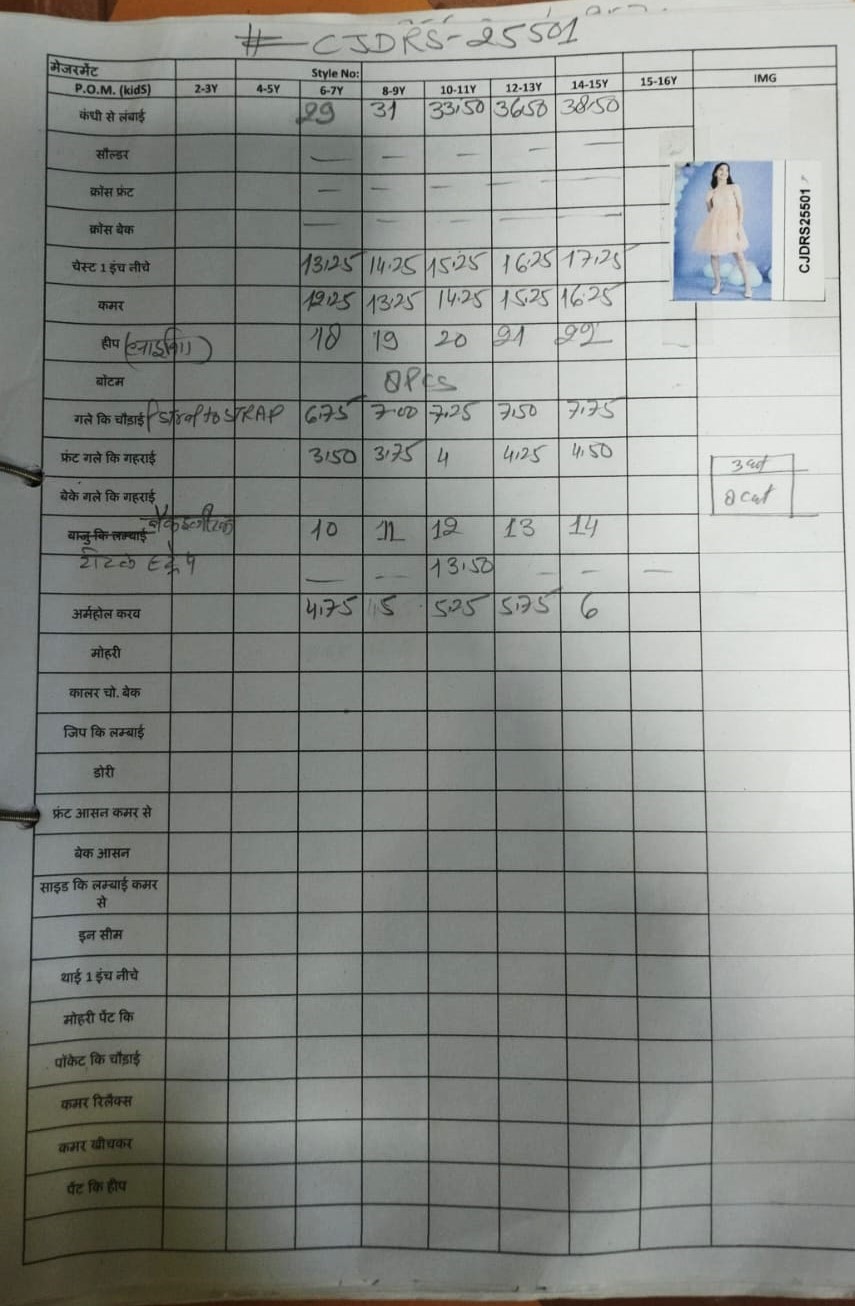 # CJDRS-25501
मेजरमेंट Style No:
P.O.M. (kidS) 2-3Y 4-5Y 6-7Y 8-9Y 10-11Y 12-13Y 14-15Y 15-16Y IMG
कंधी से लंबाई 29 31 33.50 36.50 38.50
सौल्डर — — — — —
क्रोस फ्रंट — — — — —
क्रोस बेक — — — — —
CJDRS25501
चेस्ट 1 इंच नीचे 13.25 14.25 15.25 16.25 17.25
कमर 12.25 13.25 14.25 15.25 16.25
हीप 18 19 20 21 22 —
बॉटम 8 PCS
गले कि चौड़ाई STRAP to STRAP 6.75 7.00 7.25 7.50 7.75
फ्रंट गले कि गहराई 3.50 3.75 4 4.25 4.50
बेके गले कि गहराई
बाजु कि लम्बाई 10 11 12 13 14
— — 13.50 — — —
अर्महोल करव 4.75 5 5.25 5.75 6
मोहरी
कालर चो. बेक
जिप कि लम्बाई
डोरी
फ्रंट आसन कमर से
बेक आसन
साइड कि लम्बाई कमर
से
इन सीम
थाई 1 इंच नीचे
मोहरी पेंट कि
पॉकेट कि चौड़ाई
कमर रिलैक्स
कमर खीचकर
पेंट कि हीप